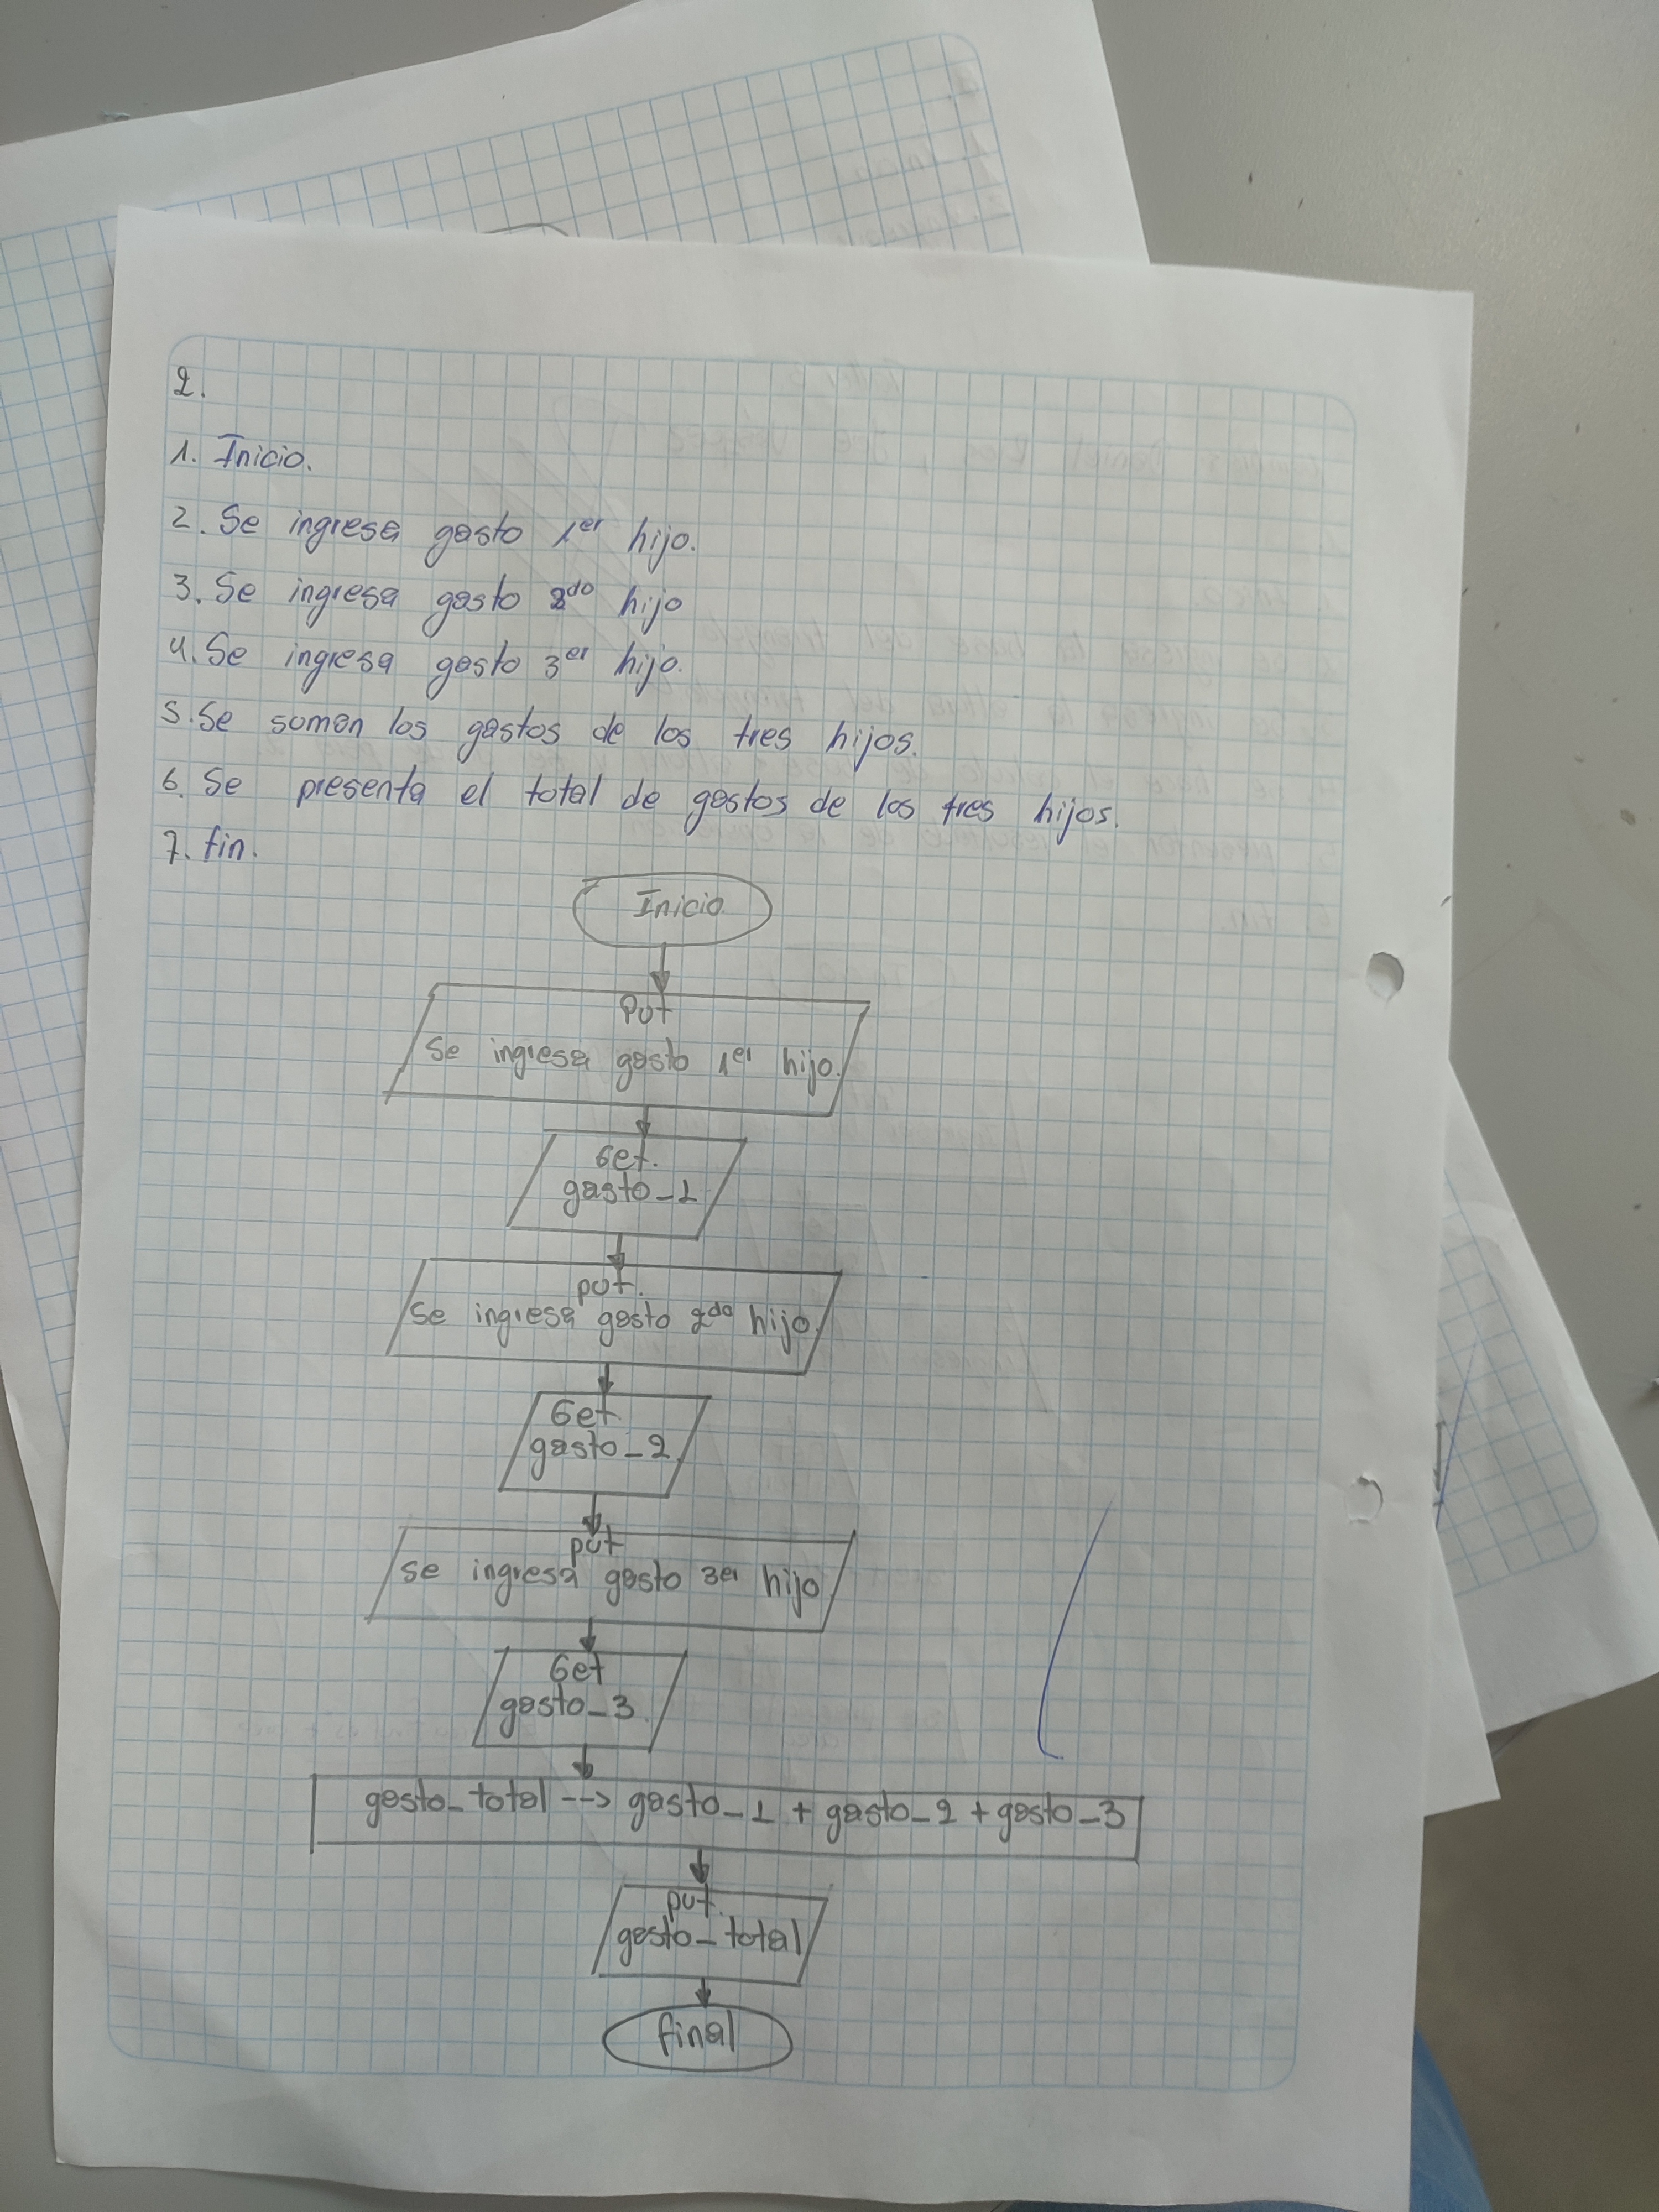 2.
1. Inicio.
2. Se ingresa gasto 1er hijo.
3. Se ingresa gasto 2do hijo
4. Se ingresa gasto 3er hijo.
5. Se suman los gastos de los tres hijos.
6. Se presenta el total de gastos de los tres hijos.
7. fin.
Inicio
Put
Se ingresa gasto 1er hijo.
Get.
gasto_1
put.
Se ingresa gasto 2do hijo.
Get
gasto_2
put
se ingresa gasto 3er hijo
Get
gasto_3.
gasto_total --> gasto_1 + gasto_2 + gasto_3
put.
gasto_total
final